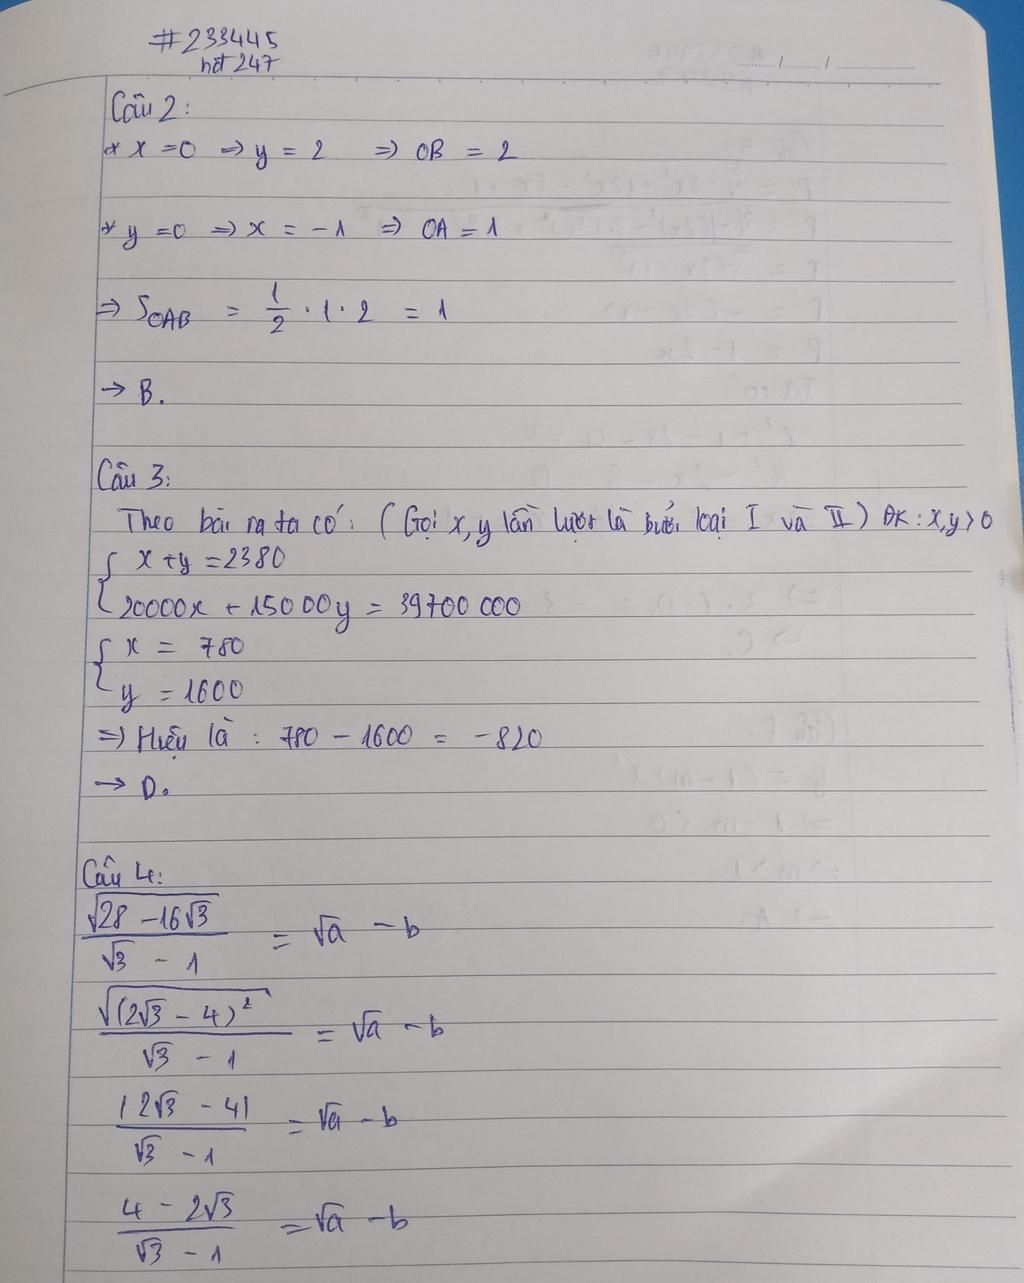 #233445
hot 247
Câu 2:
* x = 0 => y = 2 => OB = 2
* y = 0 => x = -1 => OA = 1
=> S_OAB = 1/2 · 1 · 2 = 1
→ B.
Câu 3:
Theo bài ra ta có: (Gọi x, y lần lượt là bưởi loại I và II) ĐK: x, y > 0
{ x + y = 2380
20000x + 15000y = 39700 000
{ x = 780
y = 1600
=> Hiệu là : 780 - 1600 = -820
→ D.
Câu 4:
√(28 - 16√3) / (√3 - 1) = √a - b
√((2√3 - 4)²) / (√3 - 1) = √a - b
|2√3 - 4| / (√3 - 1) = √a - b
(4 - 2√3) / (√3 - 1) = √a - b